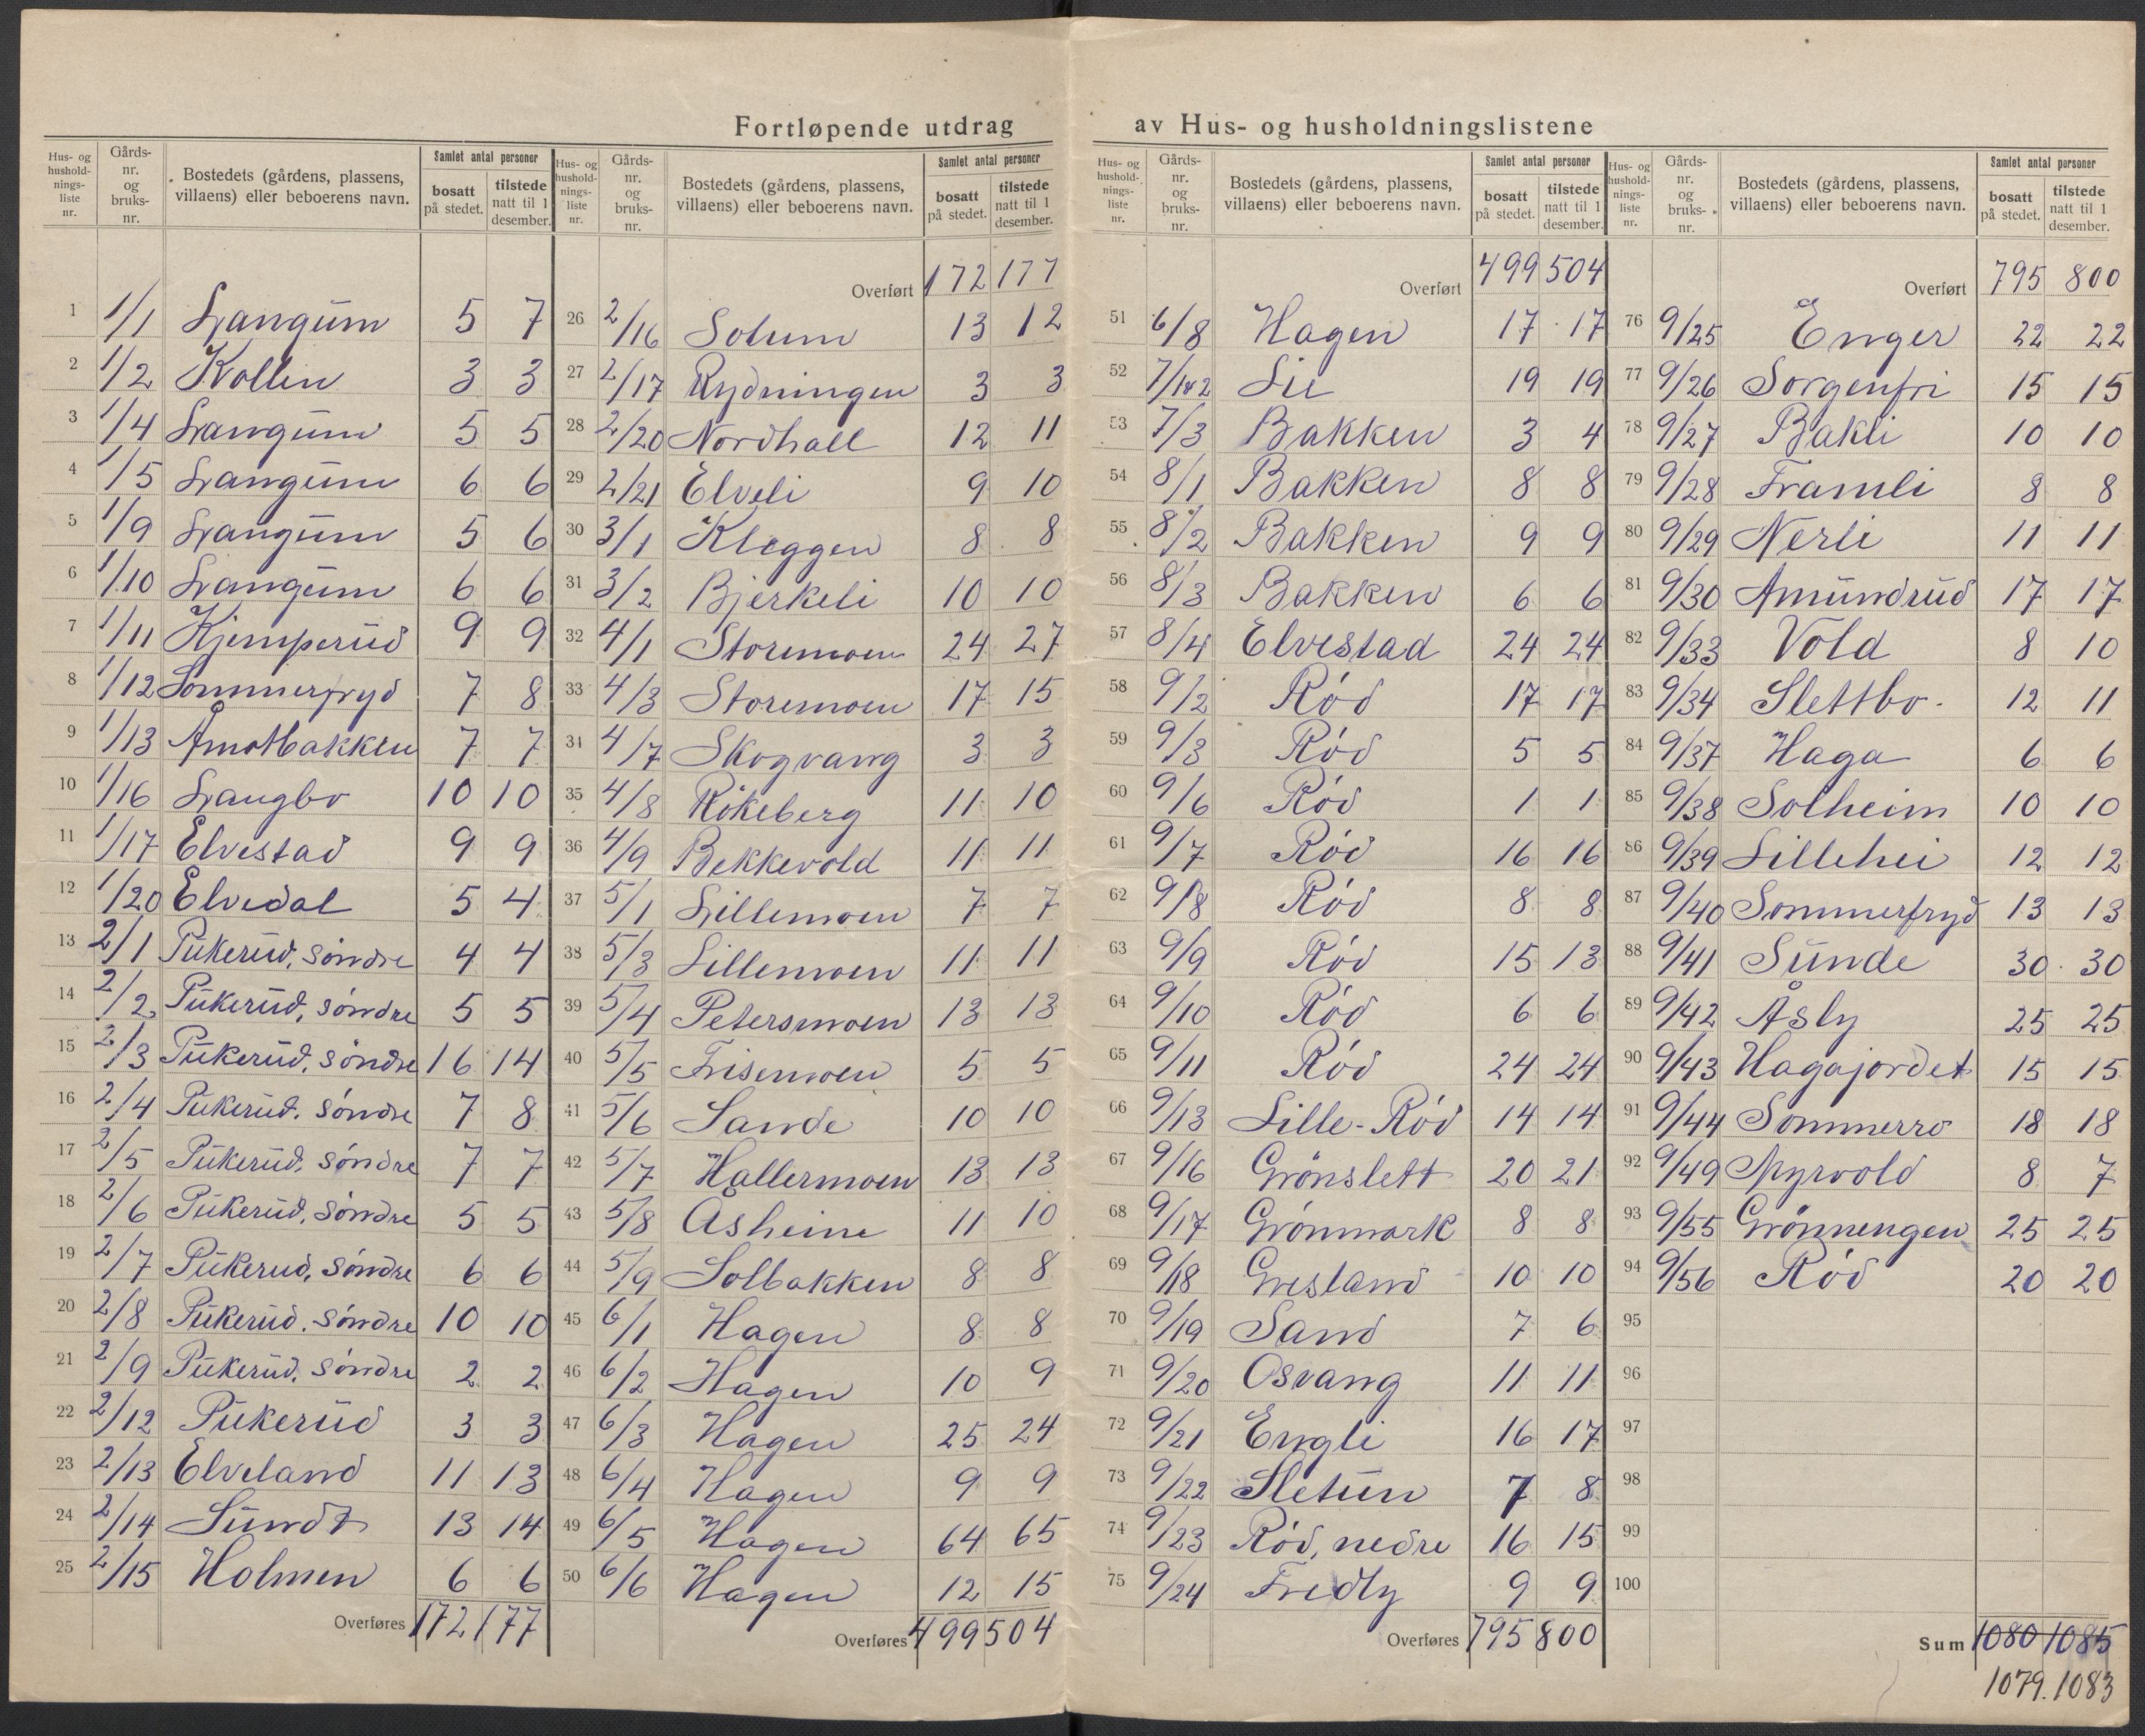 Fortløpende utdrag av Hus- og husholdningslistene
Hus- og hushold-nings-liste nr. | Gårds-nr. og bruks-nr. | Bostedets (gårdens, plassens, villaens) eller beboerens navn. | Samlet antal personer | bosatt på stedet. | tilstede natt til 1 desember.
1 1/1 Langum 5 7
2 1/2 Kollen 3 3
3 1/4 Langum 5 5
4 1/5 Langum 6 6
5 1/9 Langum 5 6
6 1/10 Langum 6 6
7 1/11 Kjemperud 9 9
8 1/12 Sommerfryd 7 8
9 1/13 Åmotbakken 7 7
10 1/16 Langbo 10 10
11 1/17 Elvestad 9 9
12 1/20 Elvedal 5 4
13 2/1 Pukerud, søndre 4 4
14 2/2 Pukerud, søndre 5 5
15 2/3 Pukerud, søndre 16 14
16 2/4 Pukerud, søndre 7 8
17 2/5 Pukerud, søndre 7 7
18 2/6 Pukerud, søndre 5 5
19 2/7 Pukerud, søndre 6 6
20 2/8 Pukerud, søndre 10 10
21 2/9 Pukerud, søndre 2 2
22 2/12 Pukerud 3 3
23 2/13 Elveland 11 13
24 2/14 Sundt 13 14
25 2/15 Holmen 6 6
Overføres 172 177
Hus- og hushold-nings-liste nr. | Gårds-nr. og bruks-nr. | Bostedets (gårdens, plassens, villaens) eller beboerens navn. | Samlet antal personer | bosatt på stedet. | tilstede natt til 1 desember.
Overført 172 177
26 2/16 Solum 13 12
27 2/17 Rydningen 3 3
28 2/20 Nordhall 12 11
29 2/21 Elveli 9 10
30 3/1 Kleggen 8 8
31 3/2 Bjerkeli 10 10
32 4/1 Storemoen 24 27
33 4/3 Storemoen 17 15
34 4/7 Skogvang 3 3
35 4/8 Råkeberg 11 10
36 4/9 Bekkevold 11 11
37 5/1 Lillemoen 7 7
38 5/3 Lillemoen 11 11
39 5/4 Petersmoen 13 13
40 5/5 Frisemoen 5 5
41 5/6 Sande 10 10
42 5/7 Hallermoen 13 13
43 5/8 Åsheim 11 10
44 5/9 Solbakken 8 8
45 6/1 Hagen 8 8
46 6/2 Hagen 10 9
47 6/3 Hagen 25 24
48 6/4 Hagen 9 9
49 6/5 Hagen 64 65
50 6/6 Hagen 12 15
Overføres 499 504
Hus- og hushold-nings-liste nr. | Gårds-nr. og bruks-nr. | Bostedets (gårdens, plassens, villaens) eller beboerens navn. | Samlet antal personer | bosatt på stedet. | tilstede natt til 1 desember.
Overført 499 504
51 6/8 Hagen 17 17
52 7/1&2 Lie 19 19
53 7/3 Bakken 3 4
54 8/1 Bakken 8 8
55 8/2 Bakken 9 9
56 8/3 Bakken 6 6
57 8/4 Elvestad 24 24
58 9/2 Rød 17 17
59 9/3 Rød 5 5
60 9/6 Rød 1 1
61 9/7 Rød 16 16
62 9/8 Rød 8 8
63 9/9 Rød 15 13
64 9/10 Rød 6 6
65 9/11 Rød 24 24
66 9/13 Lille-Rød 14 14
67 9/16 Grønslett 20 21
68 9/17 Grønmark 8 8
69 9/18 Gresland 10 10
70 9/19 Sand 7 6
71 9/20 Osvang 11 11
72 9/21 Engli 16 17
73 9/22 Sletun 7 8
74 9/23 Rød, nedre 16 15
75 9/24 Fredly 9 9
Overføres 795 800
Hus- og hushold-nings-liste nr. | Gårds-nr. og bruks-nr. | Bostedets (gårdens, plassens, villaens) eller beboerens navn. | Samlet antal personer | bosatt på stedet. | tilstede natt til 1 desember.
Overført 795 800
76 9/25 Enger 22 22
77 9/26 Sorgenfri 15 15
78 9/27 Bakli 10 10
79 9/28 Framli 8 8
80 9/29 Nerli 11 11
81 9/30 Amundrud 17 17
82 9/33 Vold 8 10
83 9/34 Slettbo 12 11
84 9/37 Haga 6 6
85 9/38 Solheim 10 10
86 9/39 Lillehei 12 12
87 9/40 Sommerfryd 13 13
88 9/41 Sunde 30 30
89 9/42 Åsly 25 25
90 9/43 Hagajordet 15 15
91 9/44 Sommerro 18 18
92 9/49 Myrvold 8 7
93 9/55 Grønnengen 25 25
94 9/56 Rød 20 20
95
96
97
98
99
100
Sum 1080 1085
1079. 1083